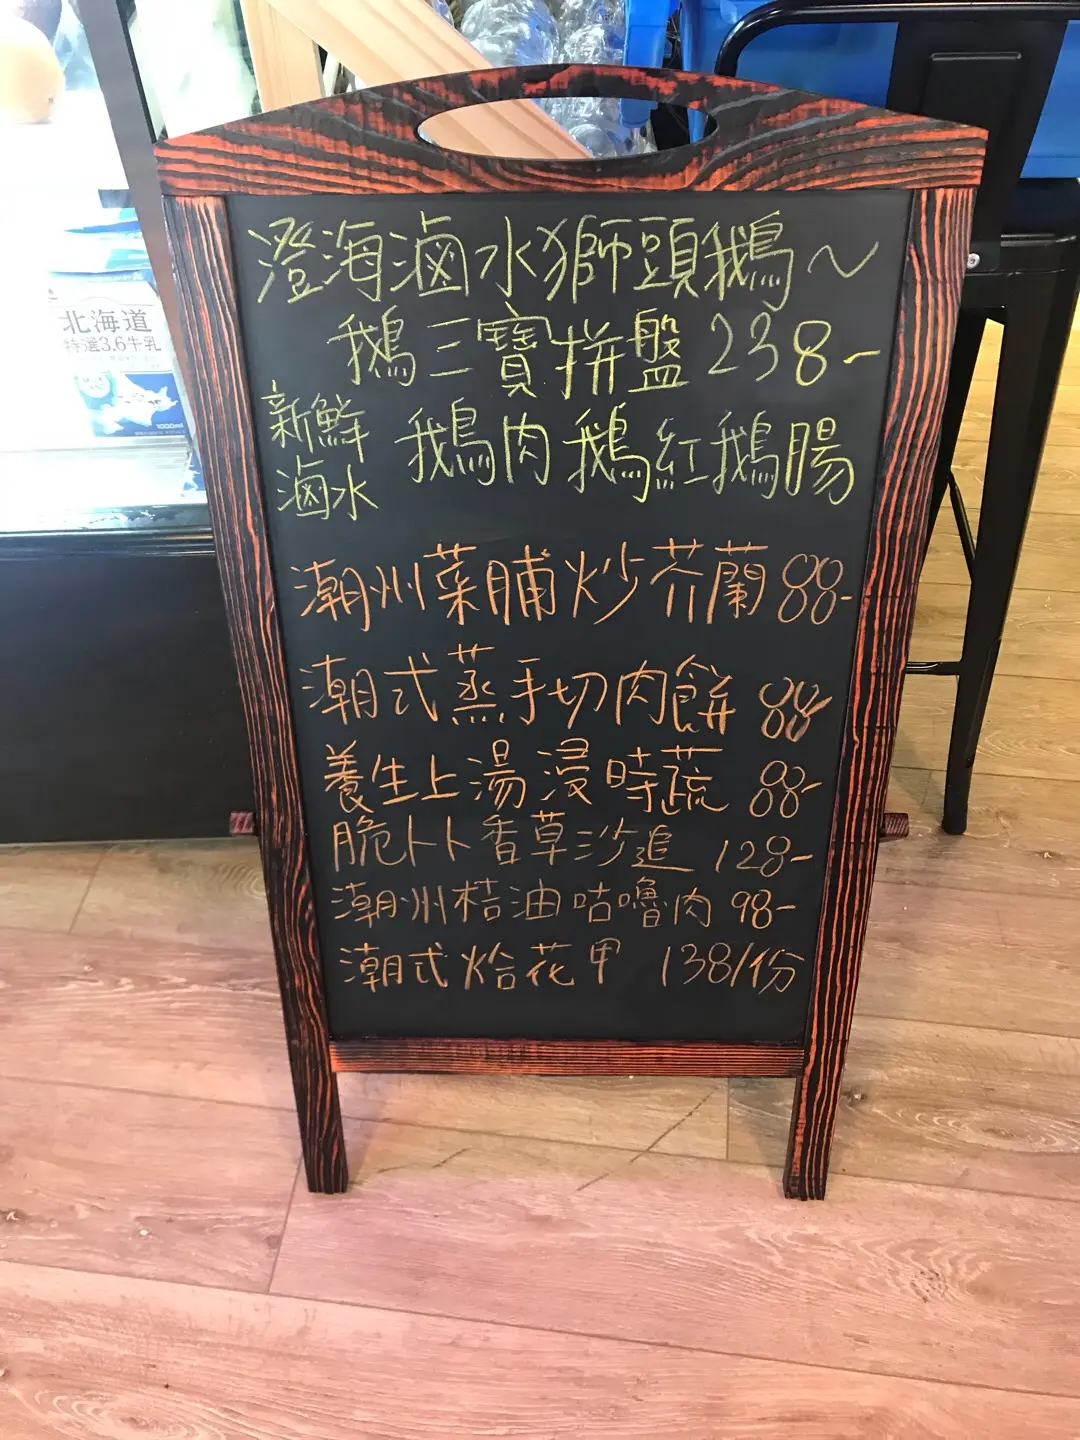 澄海滷水獅頭鵝～
鵝三寶拼盤238-
新鮮
滷水
鵝肉鵝紅鵝腸
潮州菜脯炒芥蘭88-
潮式蒸手切肉餅 88
養生上湯浸時蔬 88-
脆卜卜香草沙追 128-
潮州桔油咕嚕肉 98-
潮式烚花甲 138/份
北海道
特選3.6牛乳
1000ml